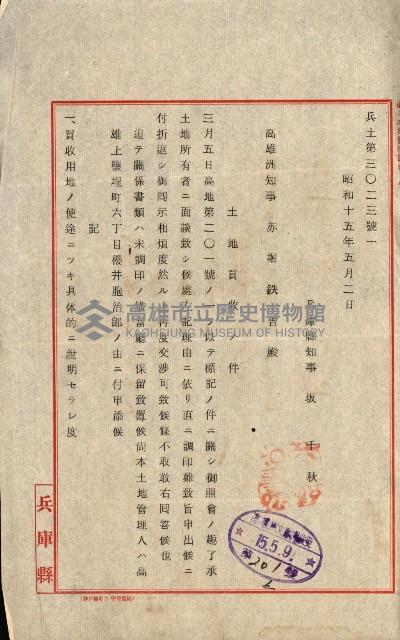 兵土第三〇二三號ノ一
昭和十五年五月二日
兵庫縣知事 坂 千秋
高雄州知事 赤堀鉄吉殿
土地買收ノ件
三月五日高地第二〇一號ノ 以テ標記ノ件ニ關シ御照會ノ趣了承
土地所有者ニ面談致シ候處左記理由ニ依リ直ニ調印難致旨申出候ニ
付折返シ御囘示相煩度然ル 再度交渉可致候條不取敢右囘答候也
追テ關係書類ハ未調印ノ儘當廳ニ保留致置候尚本土地管理人ハ高
雄上鹽埕町六丁目櫻井胞治郎ノ由ニ付申添候
記
一、買收用地ノ使途ニツキ具体的ニ説明セラレ度
兵庫縣
高雄市立歷史博物館
KAOHSIUNG MUSEUM OF HISTORY
15.5.9.
201